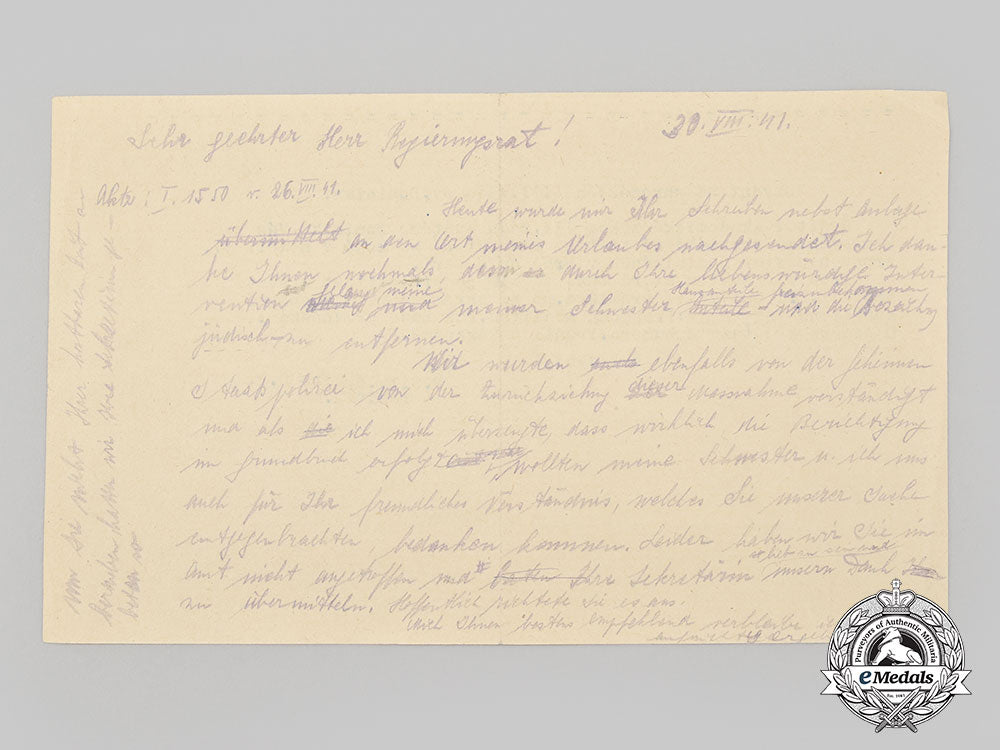 30. VIII. 41.
Sehr geehrter Herr Regierungsrat!
Akte: I. 1550 v. 26. VIII. 41.
Heute wurde mir Ihr Schreiben nebst Anlage
übermittelt an den Ort meines Urlaubes nachgesendet. Ich dan-
ke Ihnen nochmals, dass es durch Ihre liebenswürdige Inter-
vention gelang meine und meiner Schwester
die Bezeichng
jüdisch zu entfernen.
Wir wurden auch ebenfalls von der geheimen
Staatspolizei von der Zurückziehung dieser Massnahme verständigt
und als die ich mich überzeugte, dass wirklich die Berichtigung
im Grundbuch erfolgt wollten meine Schwester u. ich uns
auch für Ihr freundliches Verständnis, welches Sie unserer Sache
entgegenbrachten, bedanken kommen. Leider haben wir Sie im
Amt nicht angetroffen und baten Ihre Sekretärin unsern Dank
zu übermitteln. Hoffentlich richtete sie es aus.
Mich Ihnen bestens empfehlend verbleibe
um Sie nicht Ihrer kostbaren Zeit zu
berauben hatten wir Ihre
beten
Purveyors of Authentic Militaria
eMedals